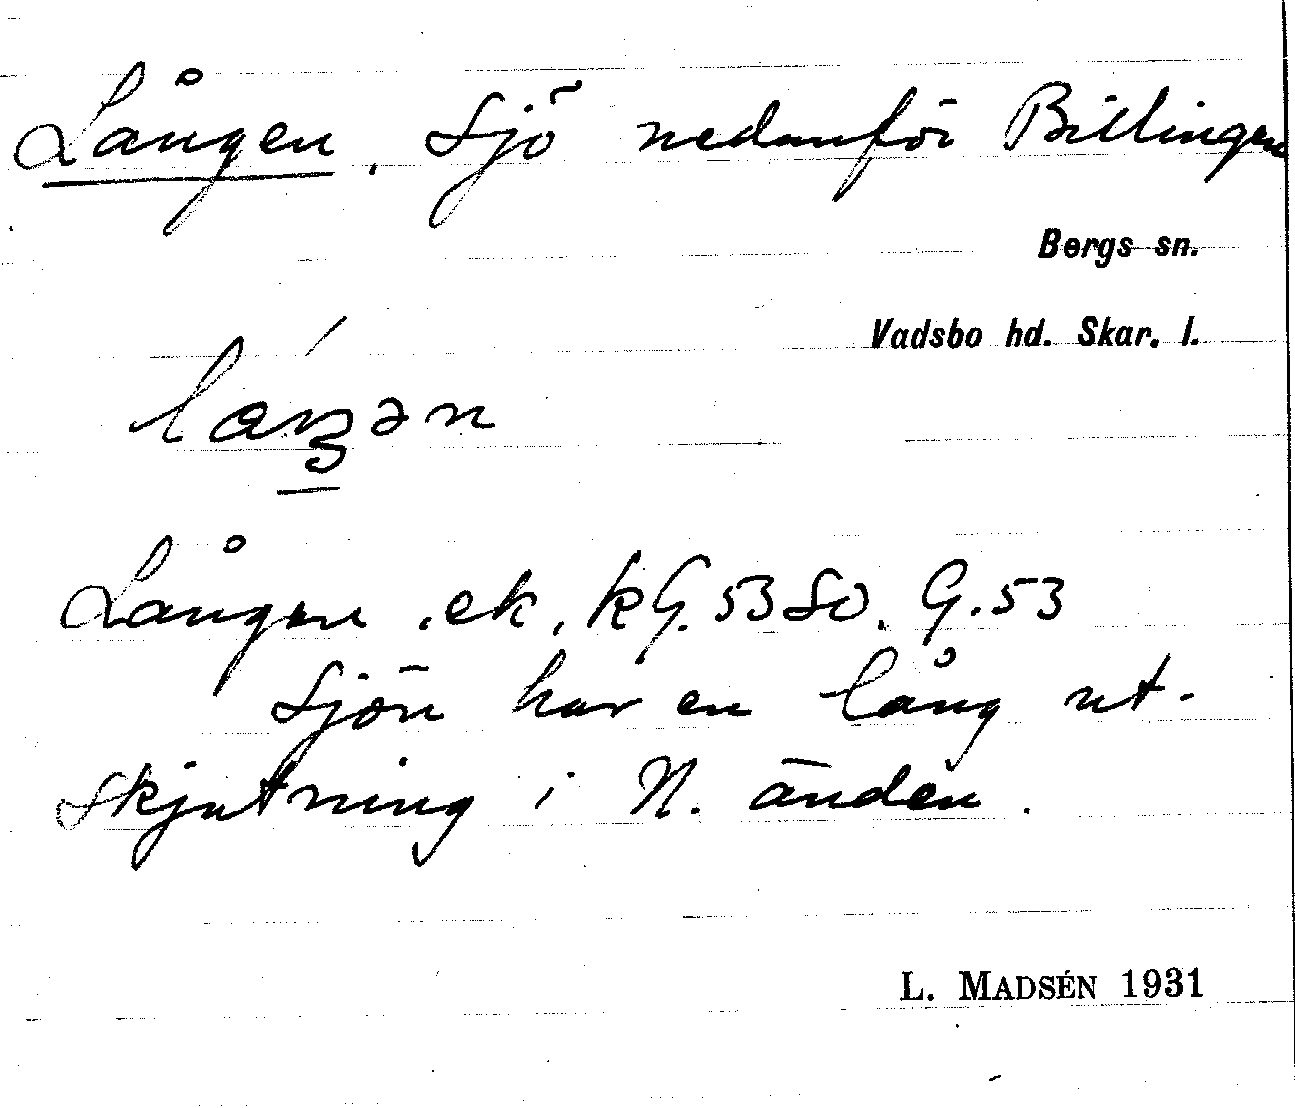 Lången, Sjö nedanför Billingen
Bergs sn.
Vadsbo hd. Skar. l.
Lången. ek. kG. 53 SO. G. 53
Sjön har en lång ut-
skjutning i N. änden.
L. MADSÉN 1931